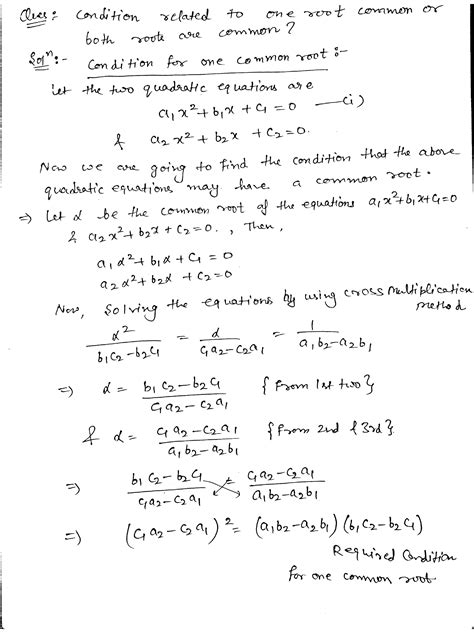 Ques: Condition related to one root common or
both roots are common?
Solⁿ:- Condition for one common root:-
Let the two quadratic equations are
a₁x²+b₁x+c₁=0 —(i)
& a₂x²+b₂x+c₂=0.
Now we are going to find the condition that the above
quadratic equations may have a common root.
⇒ Let α be the common root of the equations a₁x²+b₁x+c₁=0
& a₂x²+b₂x+c₂=0., Then,
a₁α²+b₁α+c₁=0
a₂α²+b₂α+c₂=0
Now, Solving the equations by using cross multiplication
method
α²/(b₁c₂-b₂c₁) = α/(c₁a₂-c₂a₁) = 1/(a₁b₂-a₂b₁)
⇒ α = (b₁c₂-b₂c₁)/(c₁a₂-c₂a₁) {From 1st two}
& α = (c₁a₂-c₂a₁)/(a₁b₂-a₂b₁) {From 2nd & 3rd}
⇒ (b₁c₂-b₂c₁)/(c₁a₂-c₂a₁) = (c₁a₂-c₂a₁)/(a₁b₂-a₂b₁)
⇒ (c₁a₂-c₂a₁)² = (a₁b₂-a₂b₁)(b₁c₂-b₂c₁)
Required Condition
for one common root